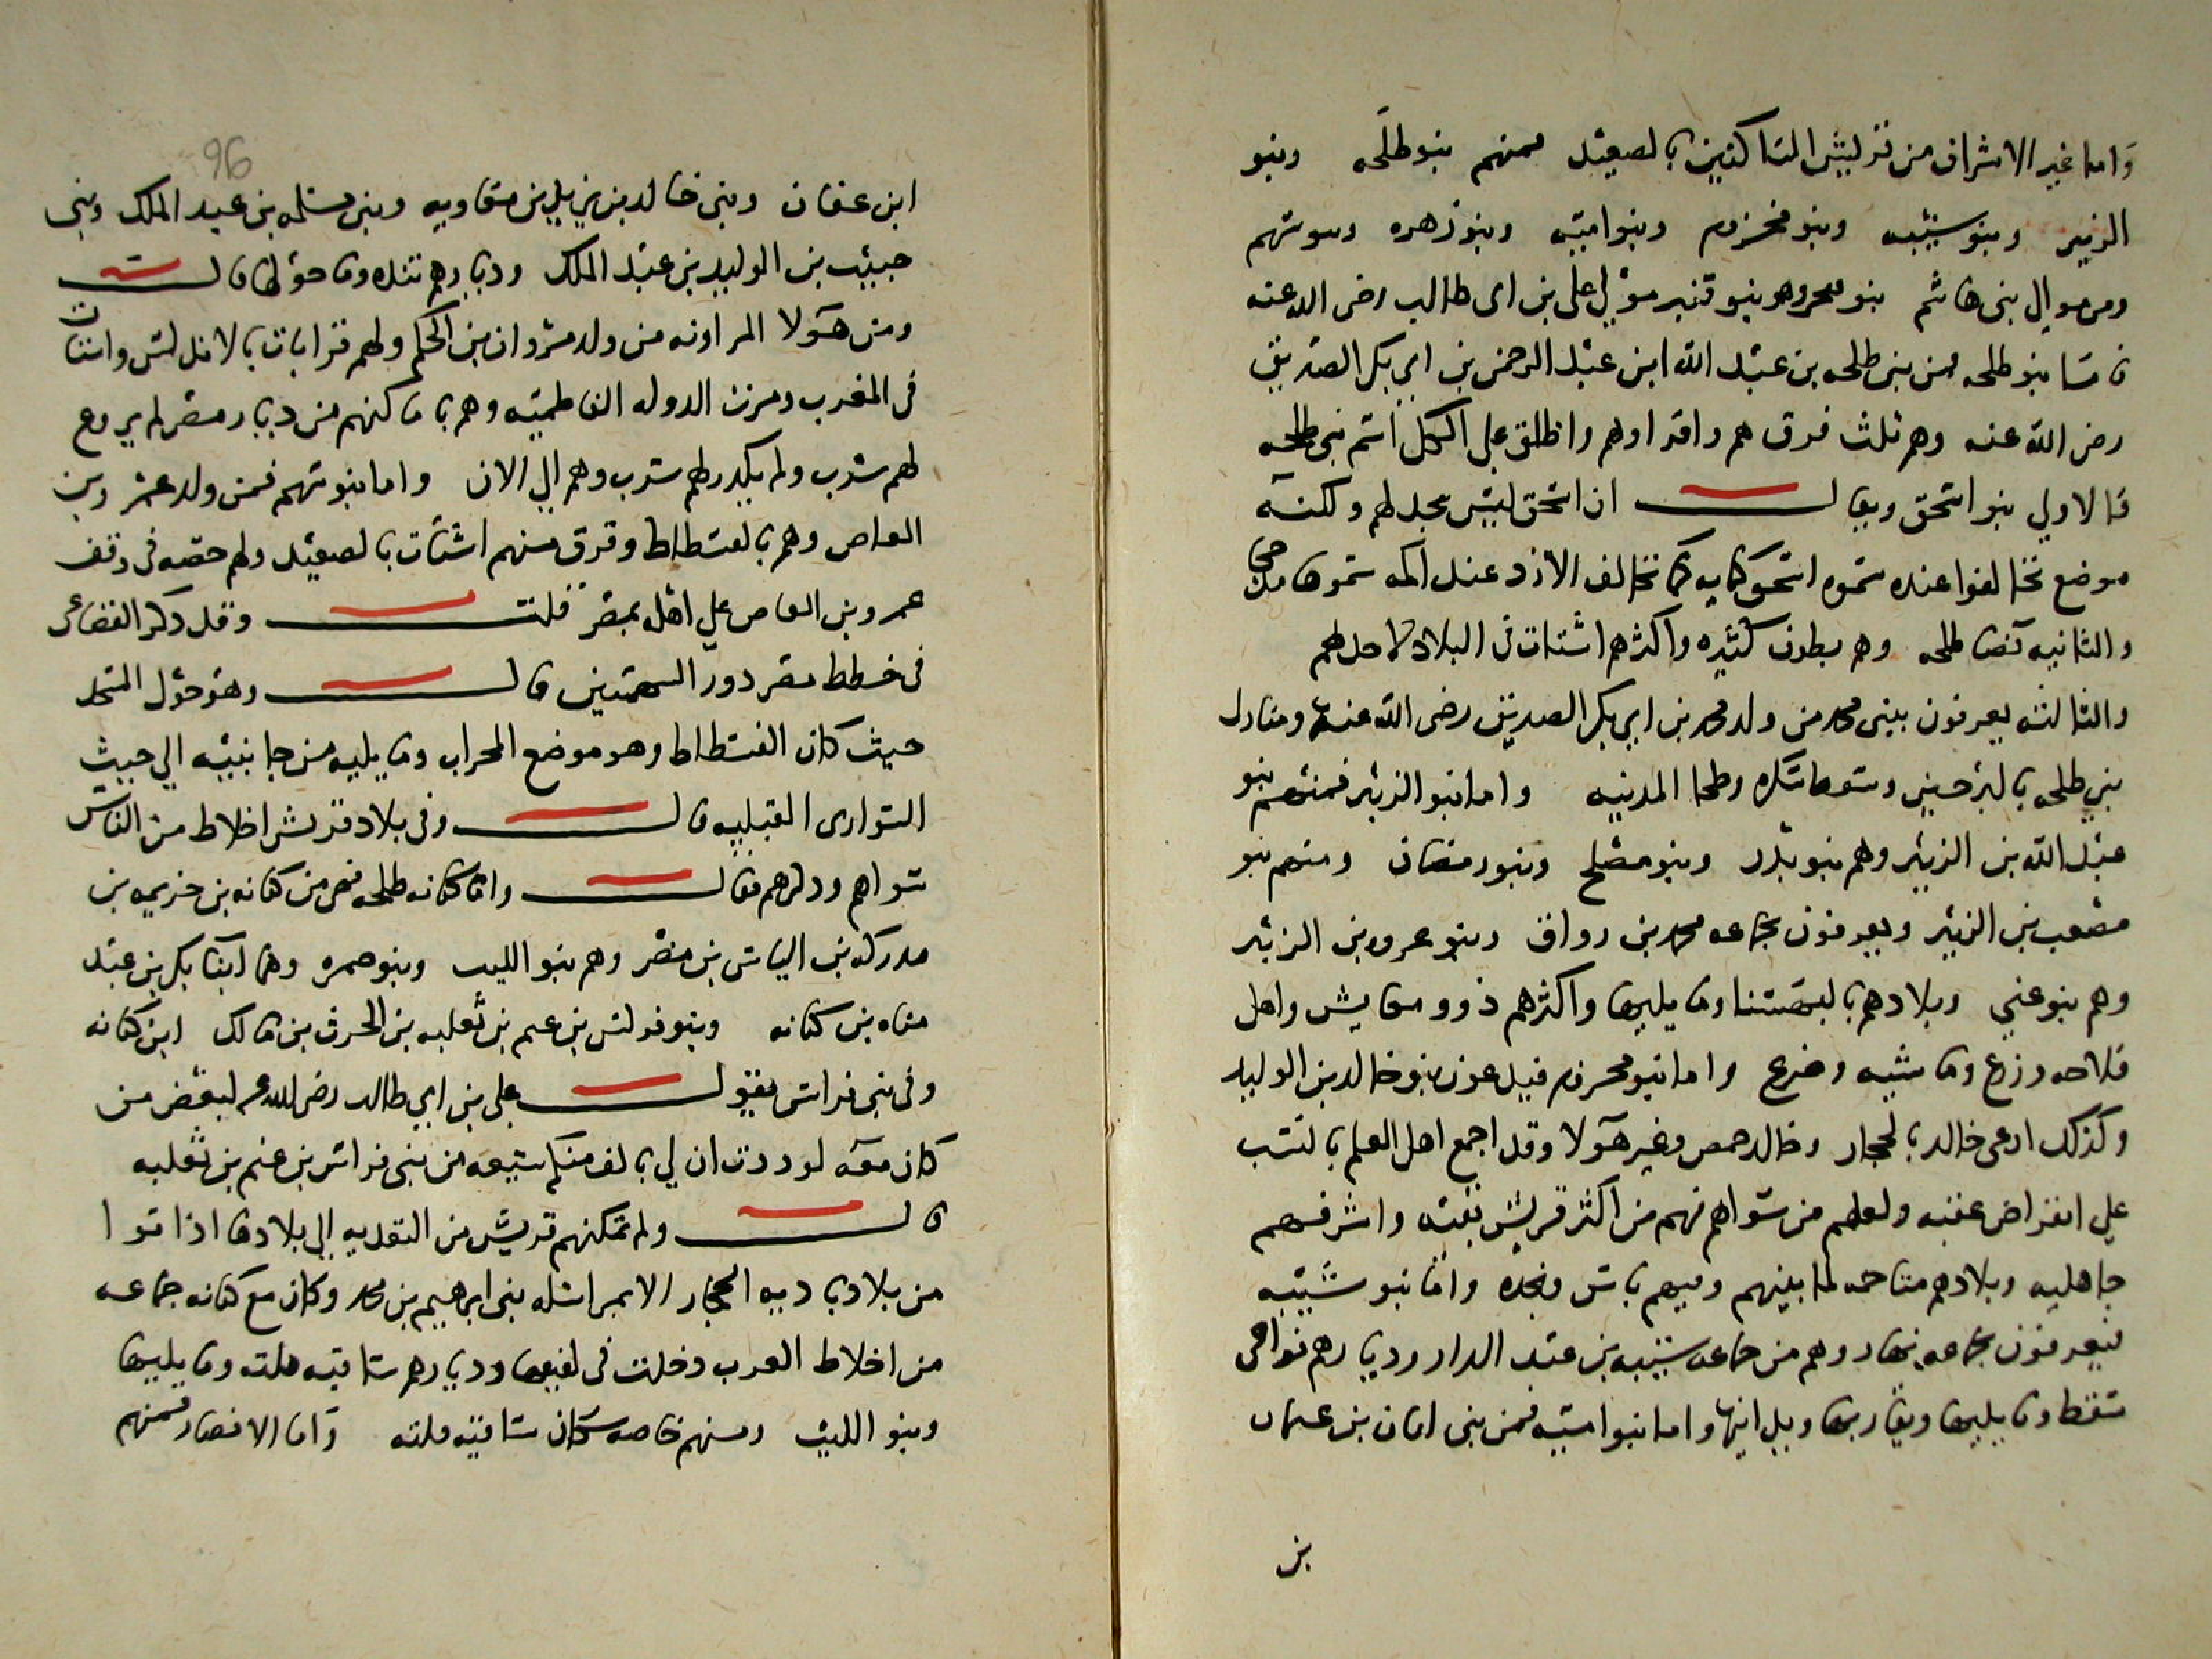 واما غير الاشراف من قريش الساكنين بالصعيد فمنهم بنو طلحه وبنو
الزبير وبنو شيبه وبنو مخزوم وبنو اميه وبنو زهره وبنو سهم
ومن موالي بني هاشم بنو قنبر مولي علي بن ابى طالب رضى الله عنه
فاما بنو طلحه فمن بنى طلحه بن عبد الله ابن عبد الرحمن بن ابي بكر الصديق
رضى الله عنه وهم ثلث فرق هم واقرباوهم واطلق علي الكل اسم بنى طلحه
فالاولي بنو اسحق ويقال ان اسحق ليس بجد لهم ولكنه
موضع تحالفوا عنده سموه اسحق كنايه كما تحالف الازد عند اكمه سموها مذحج
والثانيه قضا طلحه وهم بطون كثيره واكثرهم اشتات فى البلاد لا حد لهم
والثالثه يعرفون ببنى محمد من ولد محمد بن ابي بكر الصديق رضى الله عنه ومنازل
بني طلحه بالبرجين وسفط سكره وطحا المدينه واما بنو الزبير فمنهم بنو
عبد الله بن الزبير وهم بنو بدر وبنو مصلح وبنو رمضان ومنهم بنو
مصعب بن الزبير ويعرفون بجماعه محمد بن رواق وبنو عروه بن الزبير
وهم بنو غني وبلادهم بالبهنسا وما يليها واكثرهم ذوو معايش واهل
فلاحه وزرع وماشيه وضرع واما بنو مخزوم فيدعون بنو خالد بن الوليد
وكذلك ادعى خالد بالحجاز وخالد حمص وغير هولا وقد اجمع اهل العلم بالنسب
علي انقراض عقبه ولعلهم من سواهم فهم من اكثر قريش بقيه واشرفهم
جاهليه وبلادهم متاخمه لما بينهم وفيهم باس ونجده واما بنو شيبه
فيعرفون بجماعه نهار وهم من جماعه شيبه بن عبد الدار وديارهم نواحى
سفط وما يليها ويقاربها ويدانيها واما بنو اميه فمن بنى ابان بن عثمان
بن
96
ابن عفان وبنى خالد بن يزيد بن معاويه وبنى مسلمه بن عبد الملك وبنى
حبيب بن الوليد بن عبد الملك وديارهم تنده وما حولها قال
ومن هولا المراونه من ولد مروان بن الحكم ولهم قرابات بالاندلس واشتات
فى المغرب ومرت الدوله الفاطميه وهم باماكنهم من ديار مصر لم يروع
لهم سرب ولم يكدر لهم شرب وهم الي الان واما بنو سهم فمن ولد عمرو بن
العاص وهم بالفسطاط وفرق منهم اشتات بالصعيد ولهم حصه فى وقف
عمرو بن العاص علي اهله بمصر قلت وقد ذكر القضاعى
فى خطط مصر دور السهميين قال وهو حول المسجد
حيث كان الفسطاط وهو موضع المحراب وما يليه من جانبيه الي حيث
السوارى القبليه قال وفى بلاد قريش اخلاط من الناس
سواهم وذكرهم فقال واما كنانه طلحه فهى من كنانه بن خزيمه بن
مدركه بن الياس بن مضر وهم بنو الليث وبنو ضمره وهما ابنا بكر بن عبد
مناه بن كنانه وبنو فراس بن غنم بن ثعلبه بن الحرث بن مالك ابن كنانه
وفى بنى فراس يقول علي بن ابي طالب رضى الله عنه لبعض من
كان معه لوددت ان لي بالف منكم سبعه من بنى فراس بن غنم بن ثعلبه
قال ولم تمكنهم قريش من التعديه الي بلادها اذ اتوا
من بلاد الحجاز الا بمراسله بنى ابرهيم بن محمد وكان مع كنانه جماعه
من اخلاط العرب دخلت فى لفيفها وديارهم ساقيه قلته وما يليها
وبنو الليث ومنهم خاصه سكان ساقيه قلته واما الانصار فمنهم